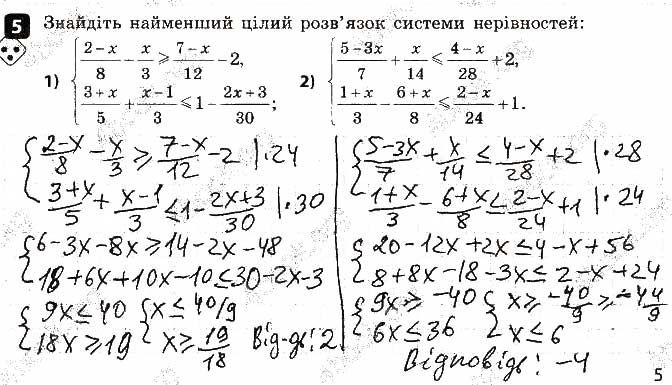 5 Знайдіть найменший цілий розв'язок системи нерівностей:
1) { (2 − x)/8 − x/3 ⩾ (7 − x)/12 − 2,
(3 + x)/5 + (x − 1)/3 ⩽ 1 − (2x + 3)/30;
2) { (5 − 3x)/7 + x/14 ⩽ (4 − x)/28 + 2,
(1 + x)/3 − (6 + x)/8 ⩽ (2 − x)/24 + 1.
{ (2−x)/8 − x/3 ⩾ (7−x)/12 − 2 |·24
(3+x)/5 + (x−1)/3 ≤ 1 − (2x+3)/30 |·30
{ 6−3x−8x ⩾ 14−2x−48
18+6x+10x−10 ≤ 30−2x−3
{ 9x ≤ 40 { x ≤ 40/9
18x ⩾ 19 x ⩾ 19/18 Від-дь: 2
{ (5−3x)/7 + x/14 ≤ (4−x)/28 + 2 |·28
(1+x)/3 − (6+x)/8 ≤ (2−x)/24 + 1 |·24
{ 20−12x+2x ≤ 4−x+56
8+8x−18−3x ≤ 2−x+24
{ 9x ⩾ −40 { x ⩾ −40/9 ⩾ −4 4/9
6x ≤ 36 x ≤ 6
Відповідь: −4
5